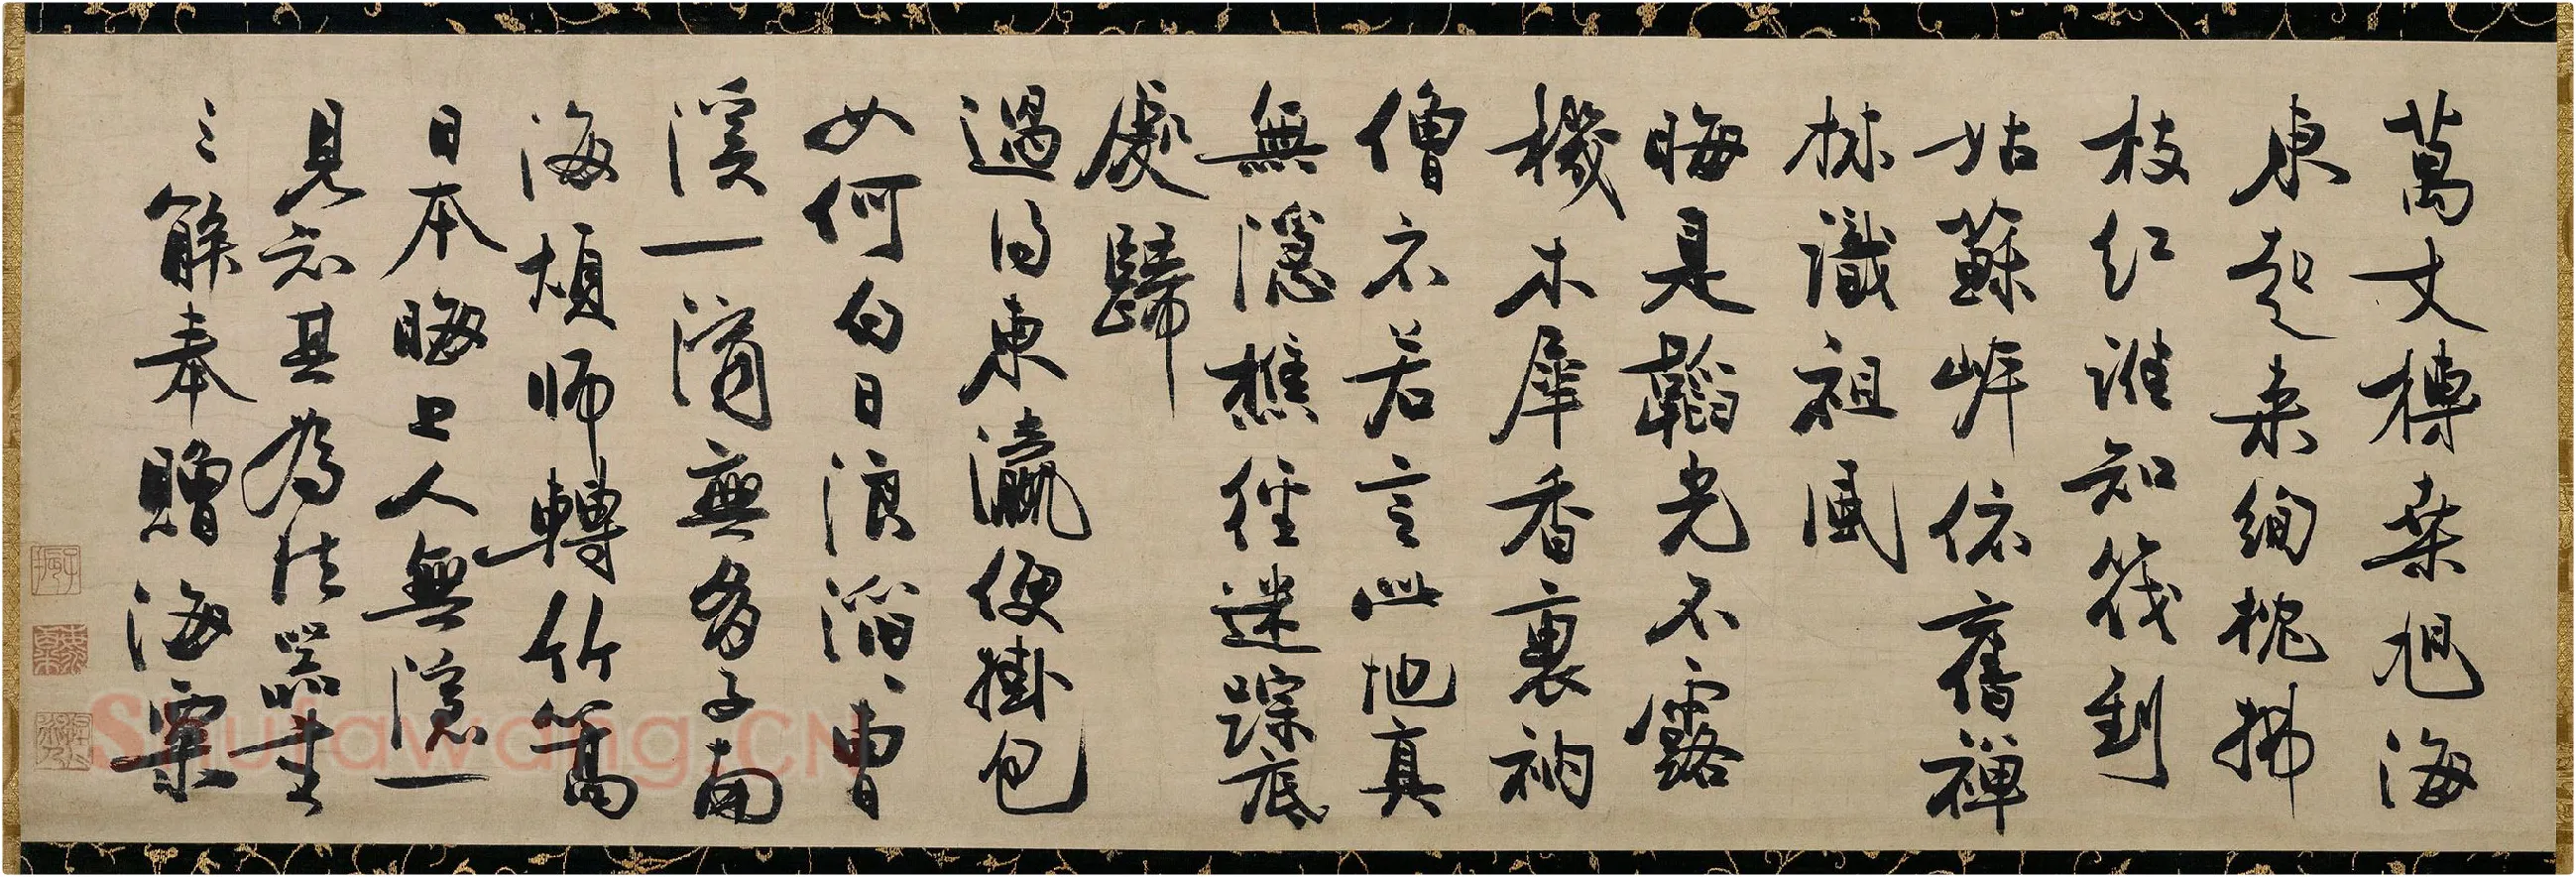 萬丈榑桑旭海
東起来絢枕拂
枝紅誰知筏到
姑蘇岸依舊禪
林識祖風
晦是韜光不露
機木犀香裏衲
僧衣若言此地真
無隱樵徑迷踪底
處歸
過得東瀛便掛包
如何白日浪滔〻曹
溪一滴無多子南
海煩師轉竹篙
日本晦上人無隱一
見知其為法器書
三解奉贈海粟
Shufawang.CN